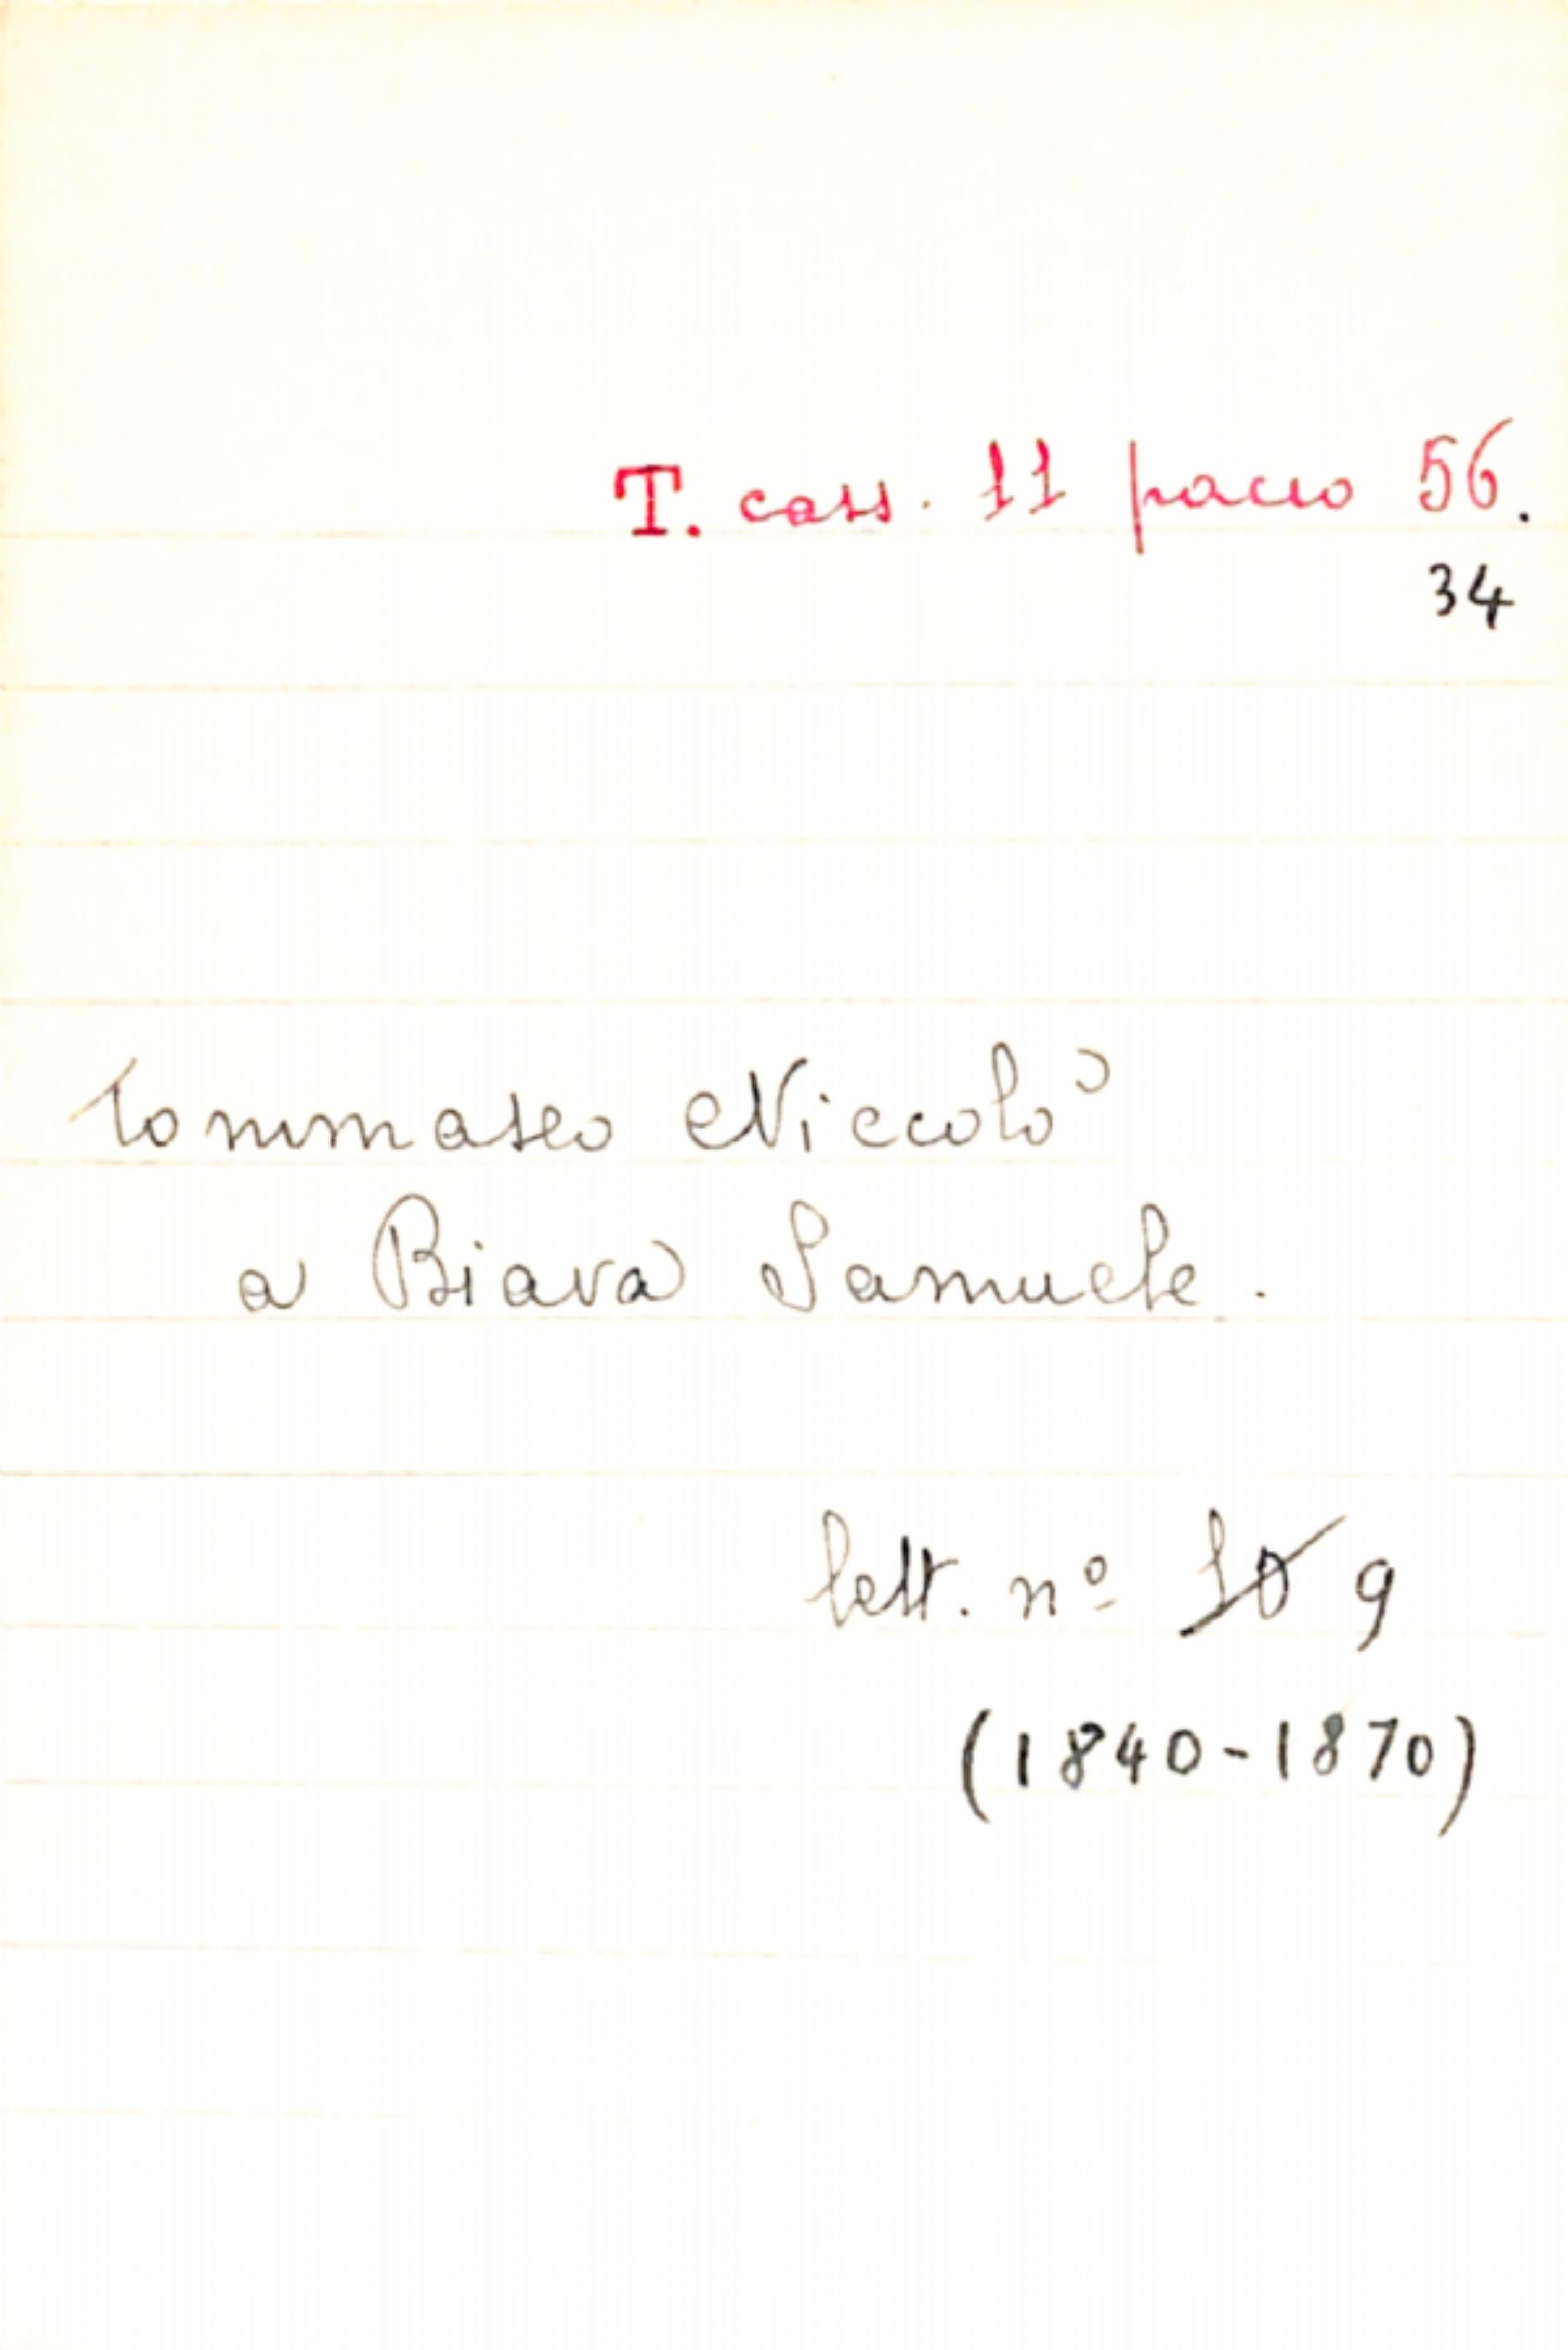 T. cass. 11 pacco 56.
34
Tommaseo Niccolò
a Biava Samuele.
lett. nº 10 9
(1840-1870)